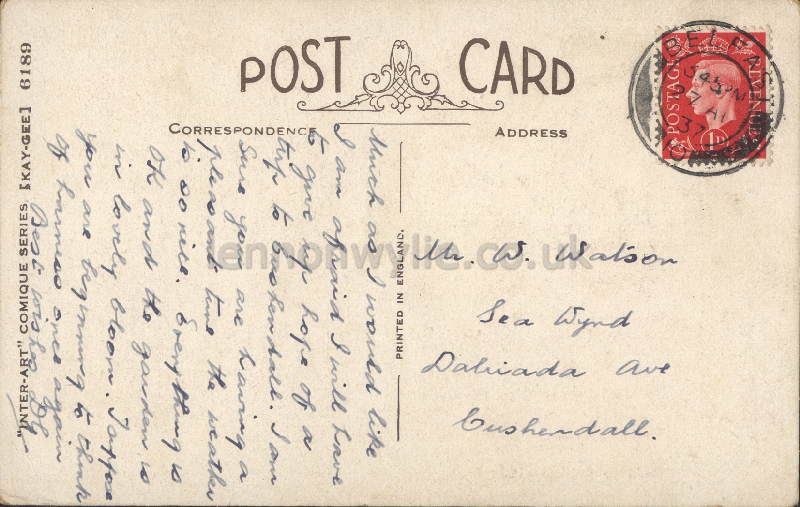 POST CARD
CORRESPONDENCE
ADDRESS
BELFAST
345 PM
37
POSTAGE REVENUE
1D
Much as I would like
I am afraid I will have
to give up hope of a
trip to Cushendall. I am
sure you are having a
pleasant time the weather
is so nice. Everything is
OK and the garden is
in lovely bloom. I
you are beginning to think
of harness once again
Best wishes
Mr. W. Watson
Sea Wynd
Dalriada Ave
Cushendall.
PRINTED IN ENGLAND.
"INTER-ART" COMIQUE SERIES [KAY-GEE] 6189
lennonwylie.co.uk